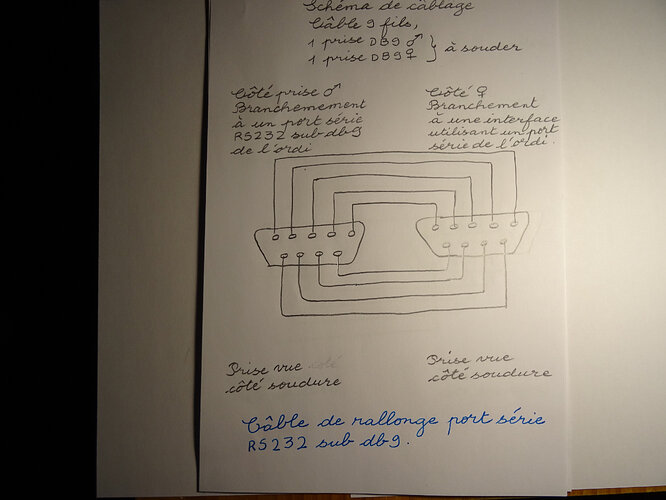 Schéma de câblage
Câble 9 fils,
1 prise DB9 ♂
1 prise DB9 ♀ } à souder
Côté prise ♂
Branchemement
à un port série
RS232 sub-db9
de l'ordi
Côté ♀
Branchement
à une interface
utilisant un port
série de l'ordi.
Prise vue côté
côté soudure
Prise vue
côté soudure
Câble de rallonge port série
RS232 sub db9.